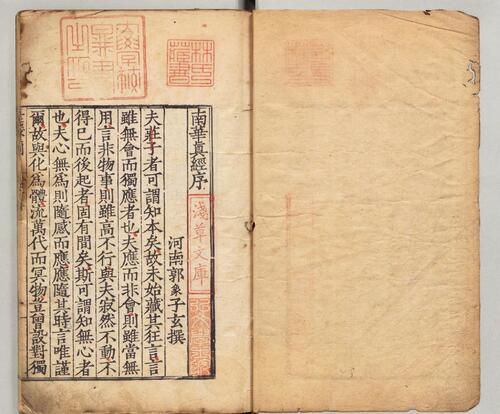 南華真經序
河南郭象子玄撰
夫莊子者可謂知本矣故未始藏其狂言言
雖無會而獨應者也夫應而非會則雖當無
用言非物事則雖高不行與夫寂然不動不
得已而後起者固有間矣斯可謂知無心者
也夫心無爲則隨感而應應隨其時言唯謹
爾故與化爲體流萬代而冥物豈曾設對獨
淺草文庫
林氏藏書